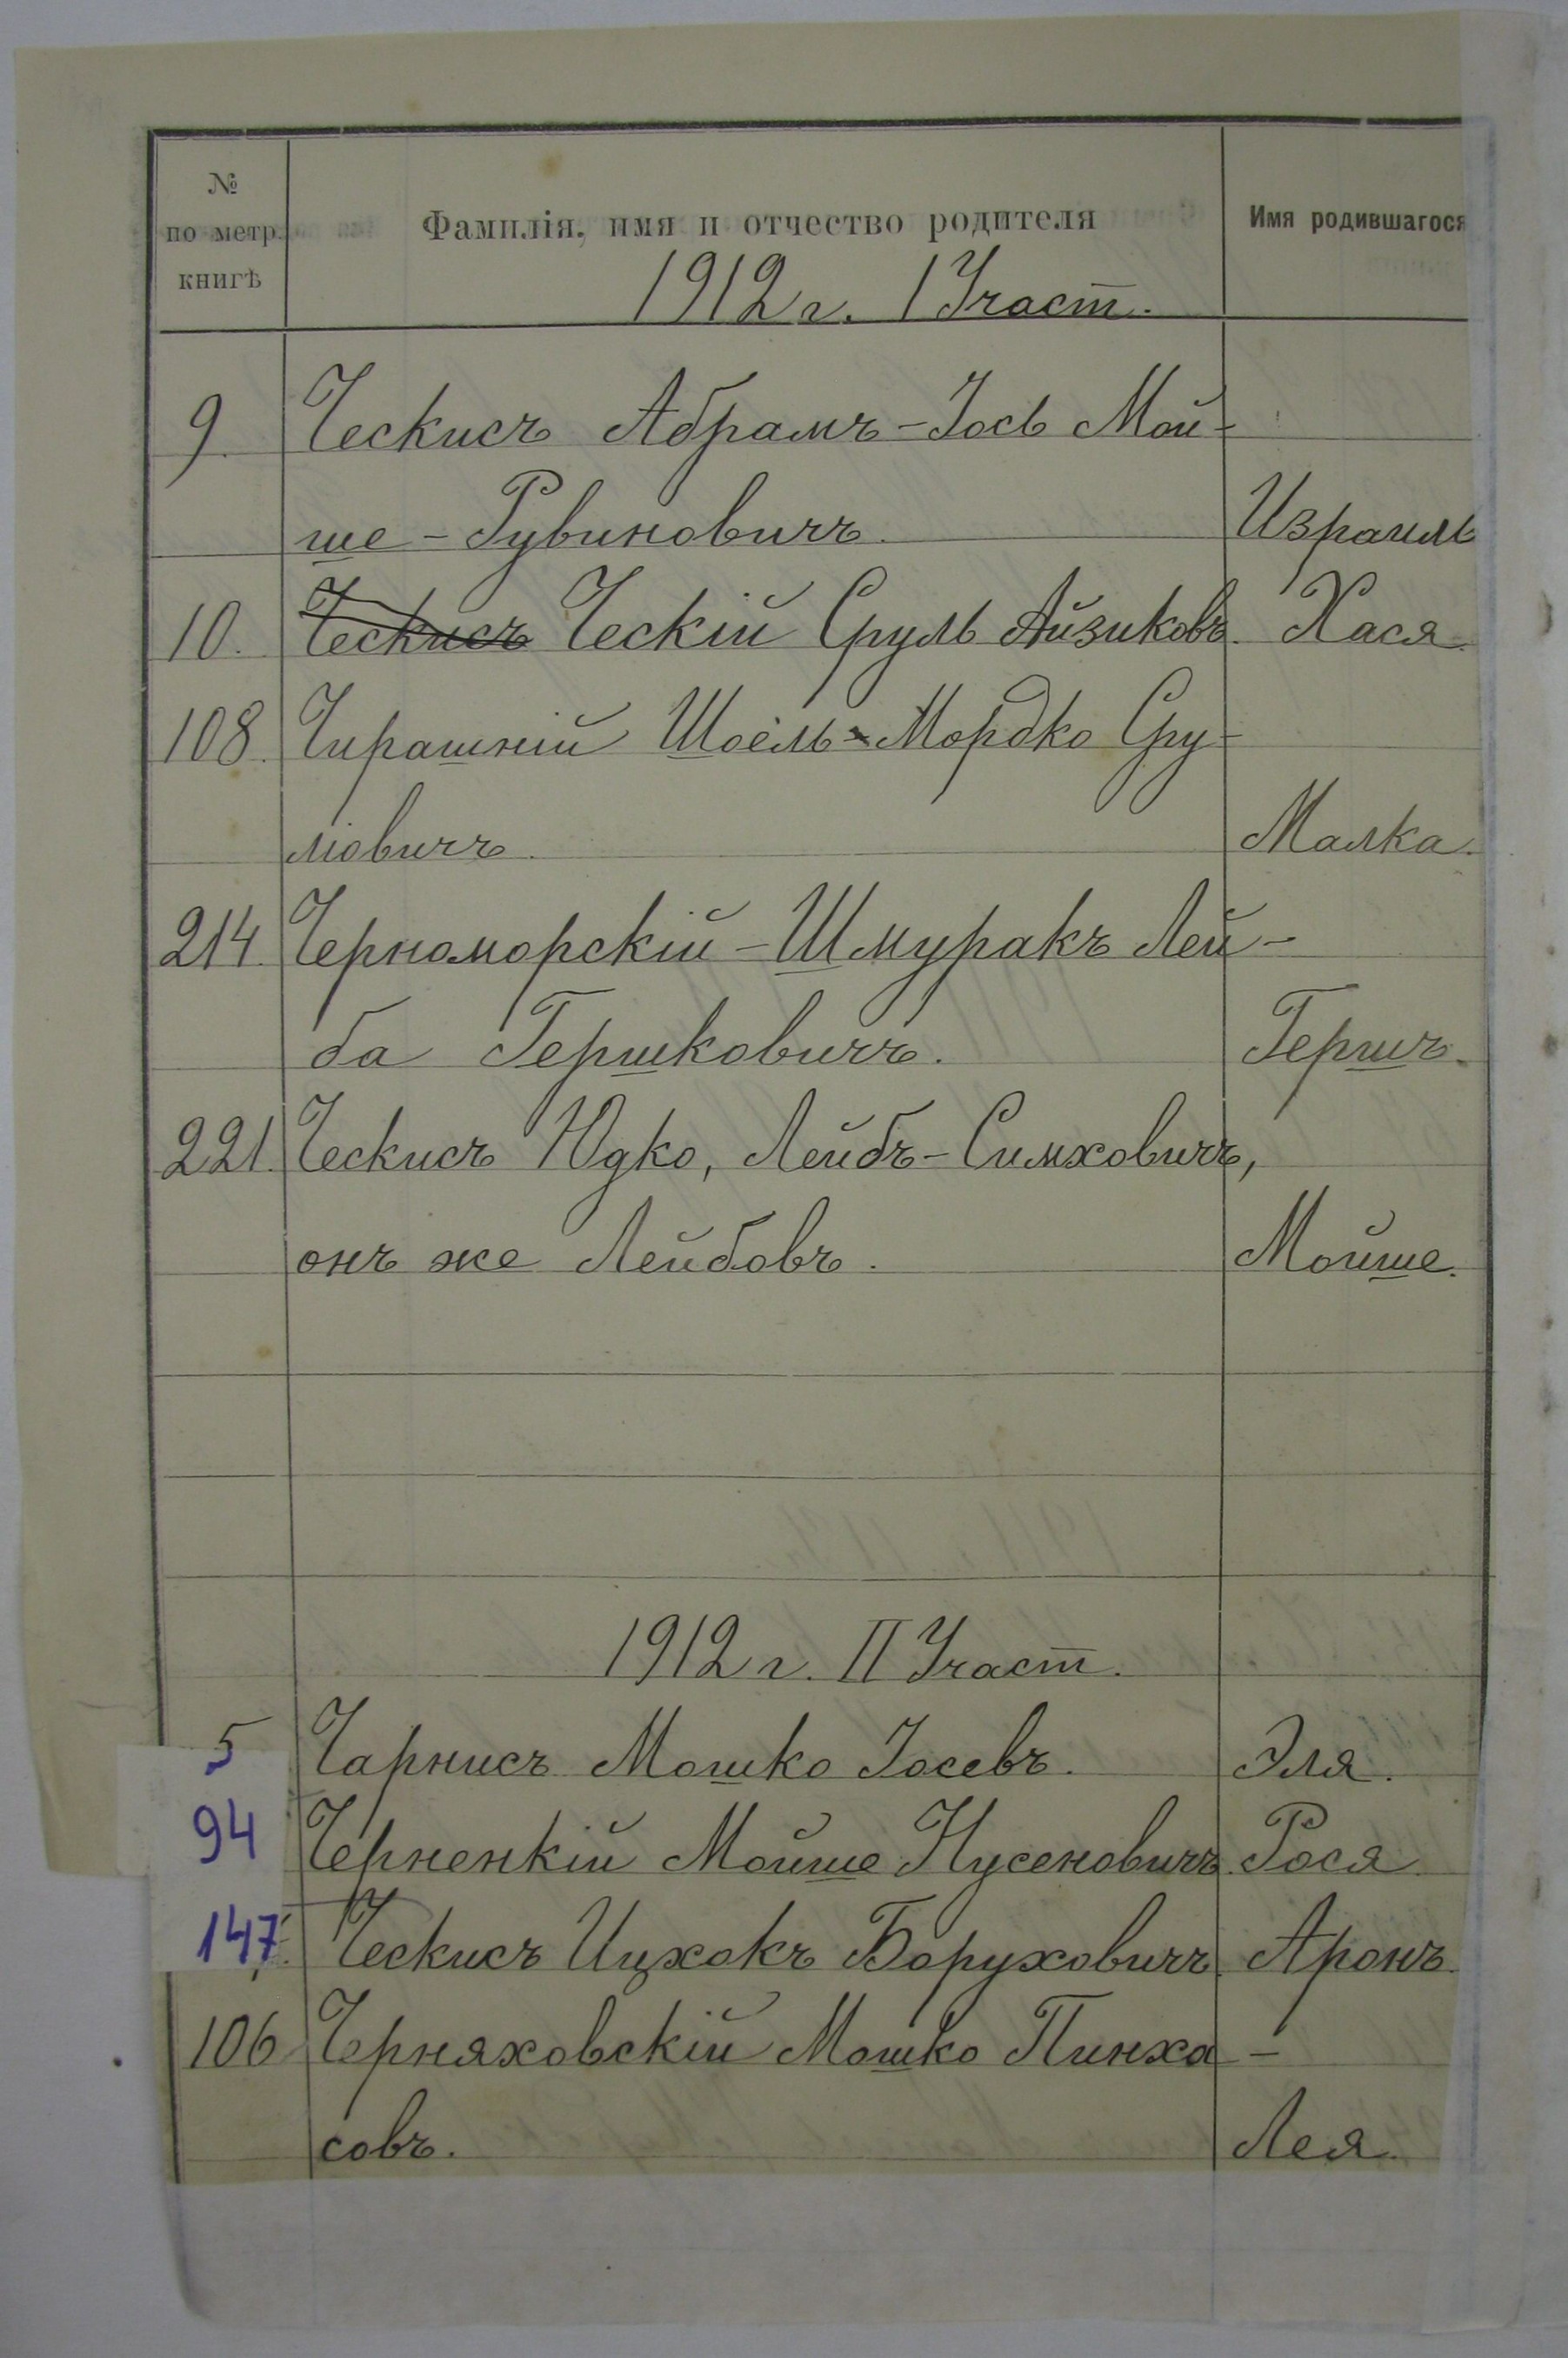 № по метр. книгѣ
Фамилія, имя и отчество родителя
Имя родившагося
1912 г. I Участ.
9. Ческисъ Абрамъ-Іось Мой-
ше-Рувиновичъ. Израиль
10. Ческисъ Ческій Сруль Айзиковъ. Хася.
108. Чирашній Шоель-Мордко Сру-
ліовичъ. Малка.
214. Черноморскій-Шмуракъ Лей-
ба Гершковичъ. Гершъ.
221. Ческисъ Юдко, Лейбъ-Симховичъ,
онъ же Лейбовъ. Мойше.
1912 г. II Участ.
5 Чарнисъ Мошко Іосевъ. Эля.
94 Черненкій Мойше Нусеновичъ. Рося.
147. Ческисъ Ицхокъ Боруховичъ. Аронъ.
106 Черняховскій Мошко Пинха-
совъ. Лея.